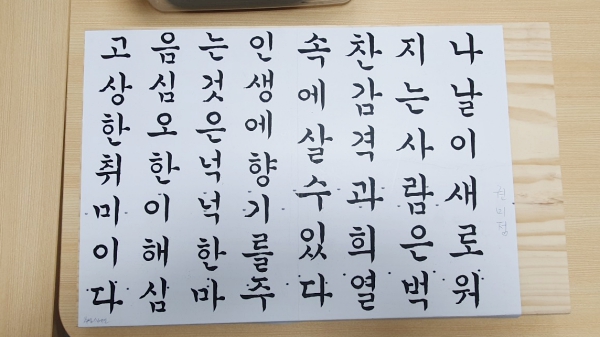 나날이새로워
지는사람은벅
찬감격과희열
속에살수있다
인생에향기를주
는것은넉넉한마
음심오한이해심
고상한취미이다